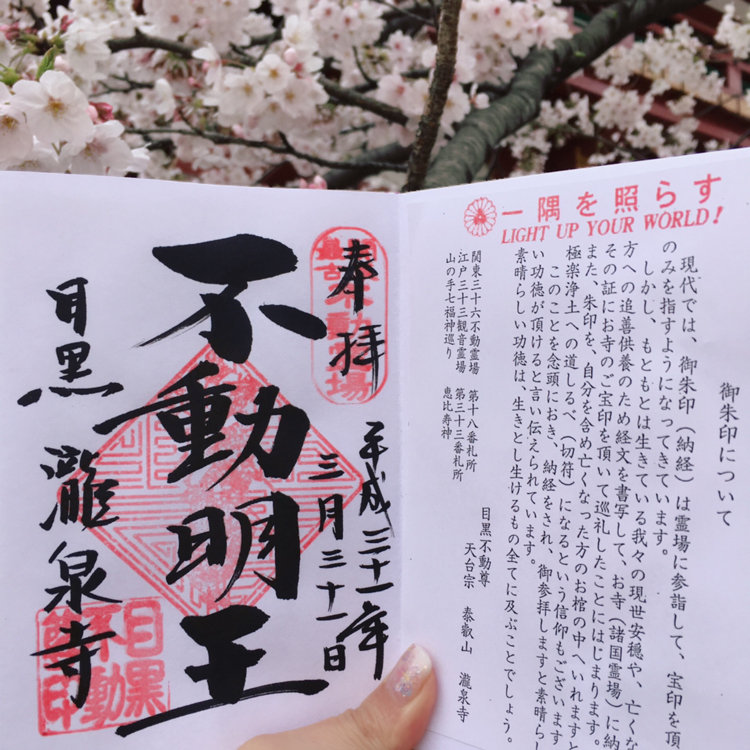 一隅を照らす
LIGHT UP YOUR WORLD!
御朱印について
現代では、御朱印（納経）は霊場に参詣して、宝印を頂
のみを指すようになってきています。
しかし、もともとは生きている我々の現世安穏や、亡くな
方への追善供養のため経文を書写して、お寺（諸国霊場）に納
その証にお寺のご宝印を頂いて巡礼したことにはじまります。
また、朱印を、自分を含め亡くなった方のお棺の中へいれます
極楽浄土への道しるべ、（切符）になるという信仰もございます
このことを念頭におき、納経をされ、御参拝しますと素晴らし
い功徳が頂けると言い伝えられています。
素晴らしい功徳は、生きとし生けるもの全てに及ぶことでしょう。
関東三十六不動霊場 第十八番札所
江戸三十三観音霊場 第三十三番札所
山の手七福神巡り 恵比寿神
目黒不動尊
天台宗 泰叡山 瀧泉寺
奉拝
最古
不動霊場
平成三十一年
三月三十一日
不動明王
目黒 瀧泉寺
目黒
不動